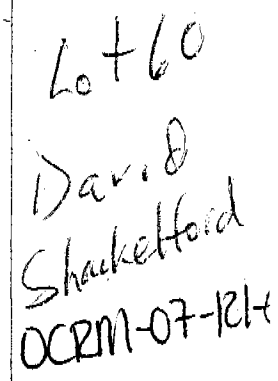 Lot 60
David
Shackelford
OCRM-07-121-